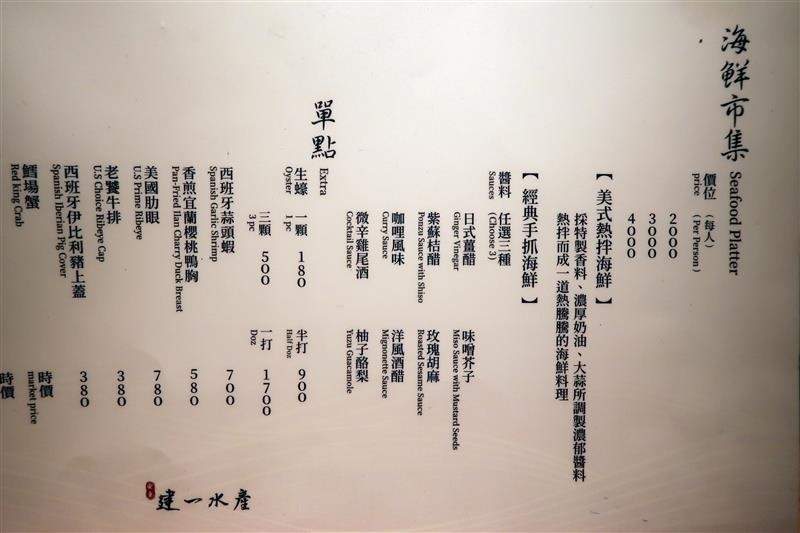 海鮮市集 Seafood Platter
價位 (每人)
price (Per Person)
2000
3000
4000
【 美式熱拌海鮮 】
採特製香料、濃厚奶油、大蒜所調製濃郁醬料
熱拌而成一道熱騰騰的海鮮料理
【 經典手抓海鮮 】
醬料 任選三種
Sauces (Choose 3)
日式薑醋 味噌芥子
Ginger Vinegar Miso Sauce with Mustard Seeds
紫蘇桔醋 玫瑰胡麻
Ponzu Sauce with Shiso Roasted Sesame Sauce
咖哩風味 洋風酒醋
Curry Sauce Mignonette Sauce
微辛雞尾酒 柚子酪梨
Cocktail Sauce Yuzu Guacamole
單點 Extra
生蠔 一顆 180 半打 900
Oyster 1 pc Half Doz
三顆 500 一打 1700
3 pc Doz
西班牙蒜頭蝦 700
Spanish Garlic Shrimp
香煎宜蘭櫻桃鴨胸 580
Pan-Fried Ilan Charry Duck Breast
美國肋眼 780
U.S Prime Ribeye
老饕牛排 380
U.S Choice Ribeye Cap
西班牙伊比利豬上蓋 380
Spanish Iberian Pig Cover
鱈場蟹 時價
Red king Crab market price
時價
建一水產